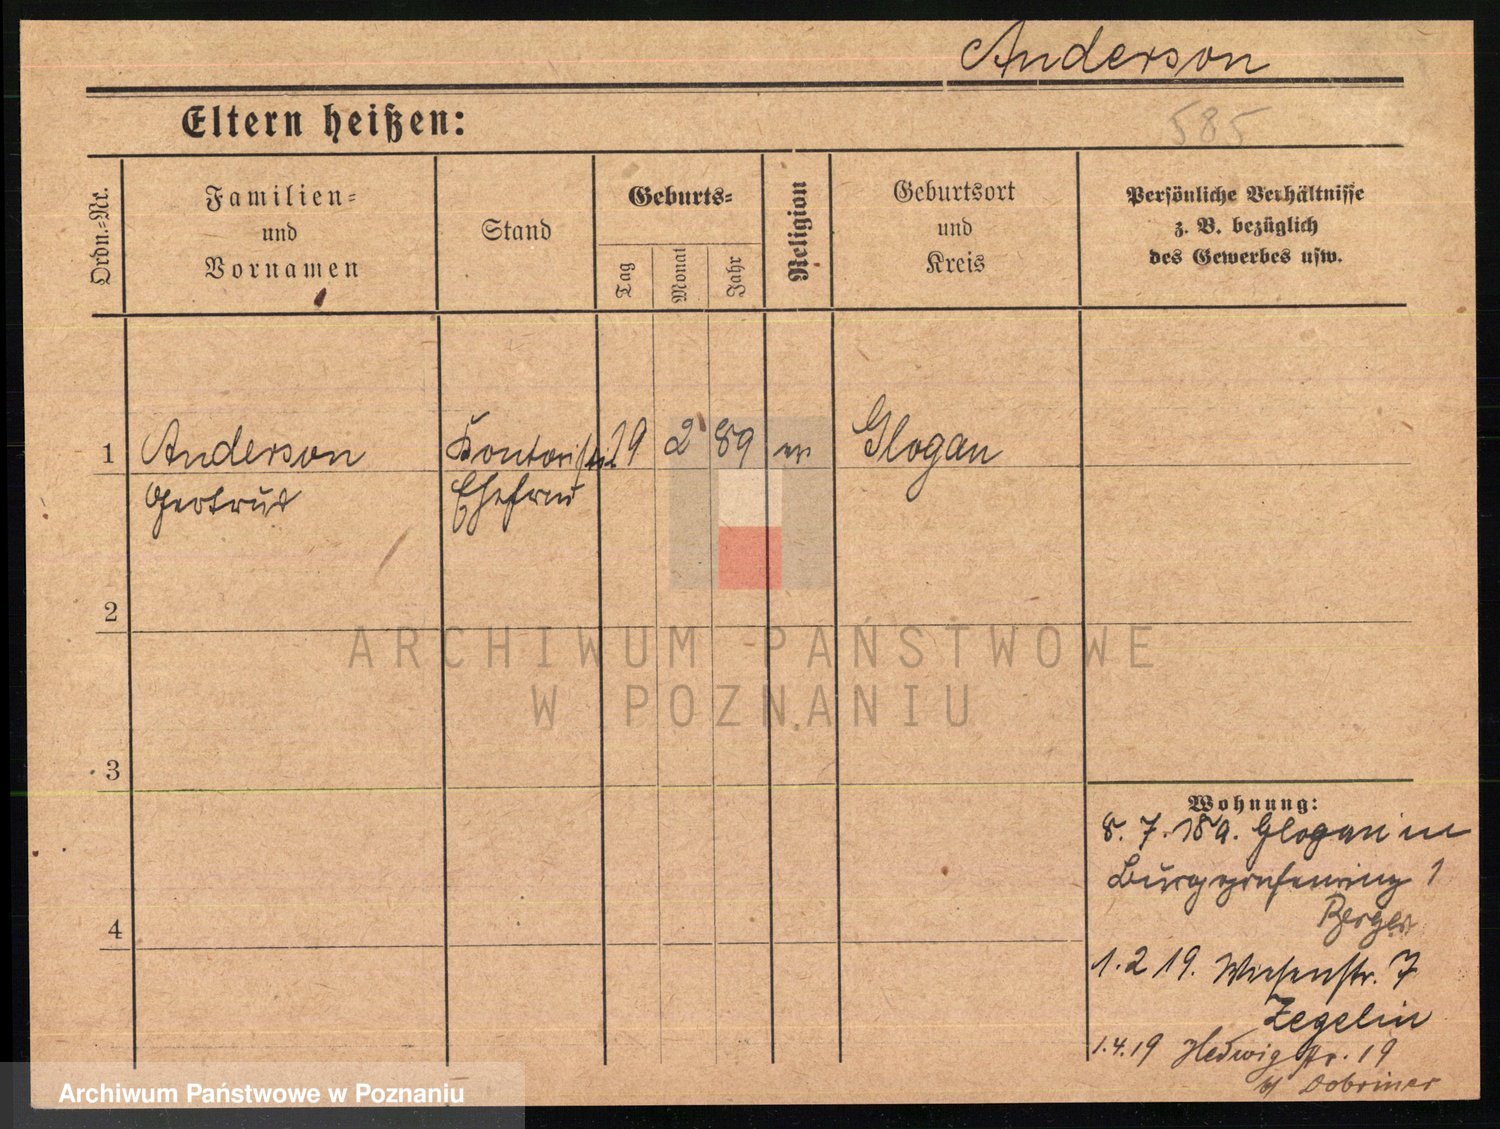 Anderson
Eltern heißen:
585
Ordn.-Nr.
Familien-
und
Vornamen
Stand
Geburts-
Tag
Monat
Jahr
Religion
Geburtsort
und
Kreis
Persönliche Verhältnisse
z. B. bezüglich
des Gewerbes usw.
1 Anderson Kontoristin 19 2 89 ev Glogau
Gertrud Ehefrau
2
3
4
Wohnung:
8. 7. 18 a. Glogau in
Burggrafenring 1
Berger
1. 2 19. Wiesenstr. 7
Zegelin
1.4.19 Hedwigstr. 19
b/ Dobriner
ARCHIWUM PAŃSTWOWE
W POZNANIU
Archiwum Państwowe w Poznaniu